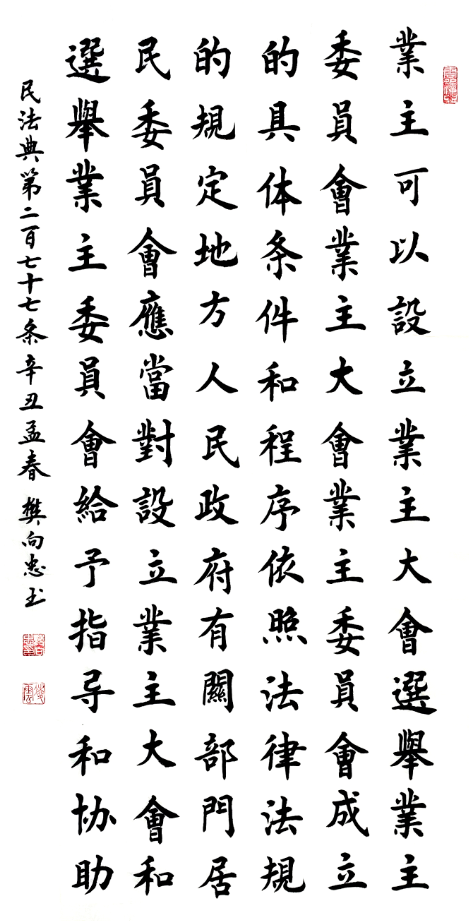 業主可以設立業主大會選舉業主
委員會業主大會業主委員會成立
的具体条件和程序依照法律法規
的規定地方人民政府有關部門居
民委員會應當對設立業主大會和
選舉業主委員會給予指导和协助
民法典第二百七十七条辛丑孟春 樊向忠书